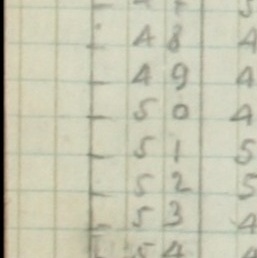 4 8 4
4 9 4
5 0 4
5 1 5
5 2 5
5 3 4
5 4 4